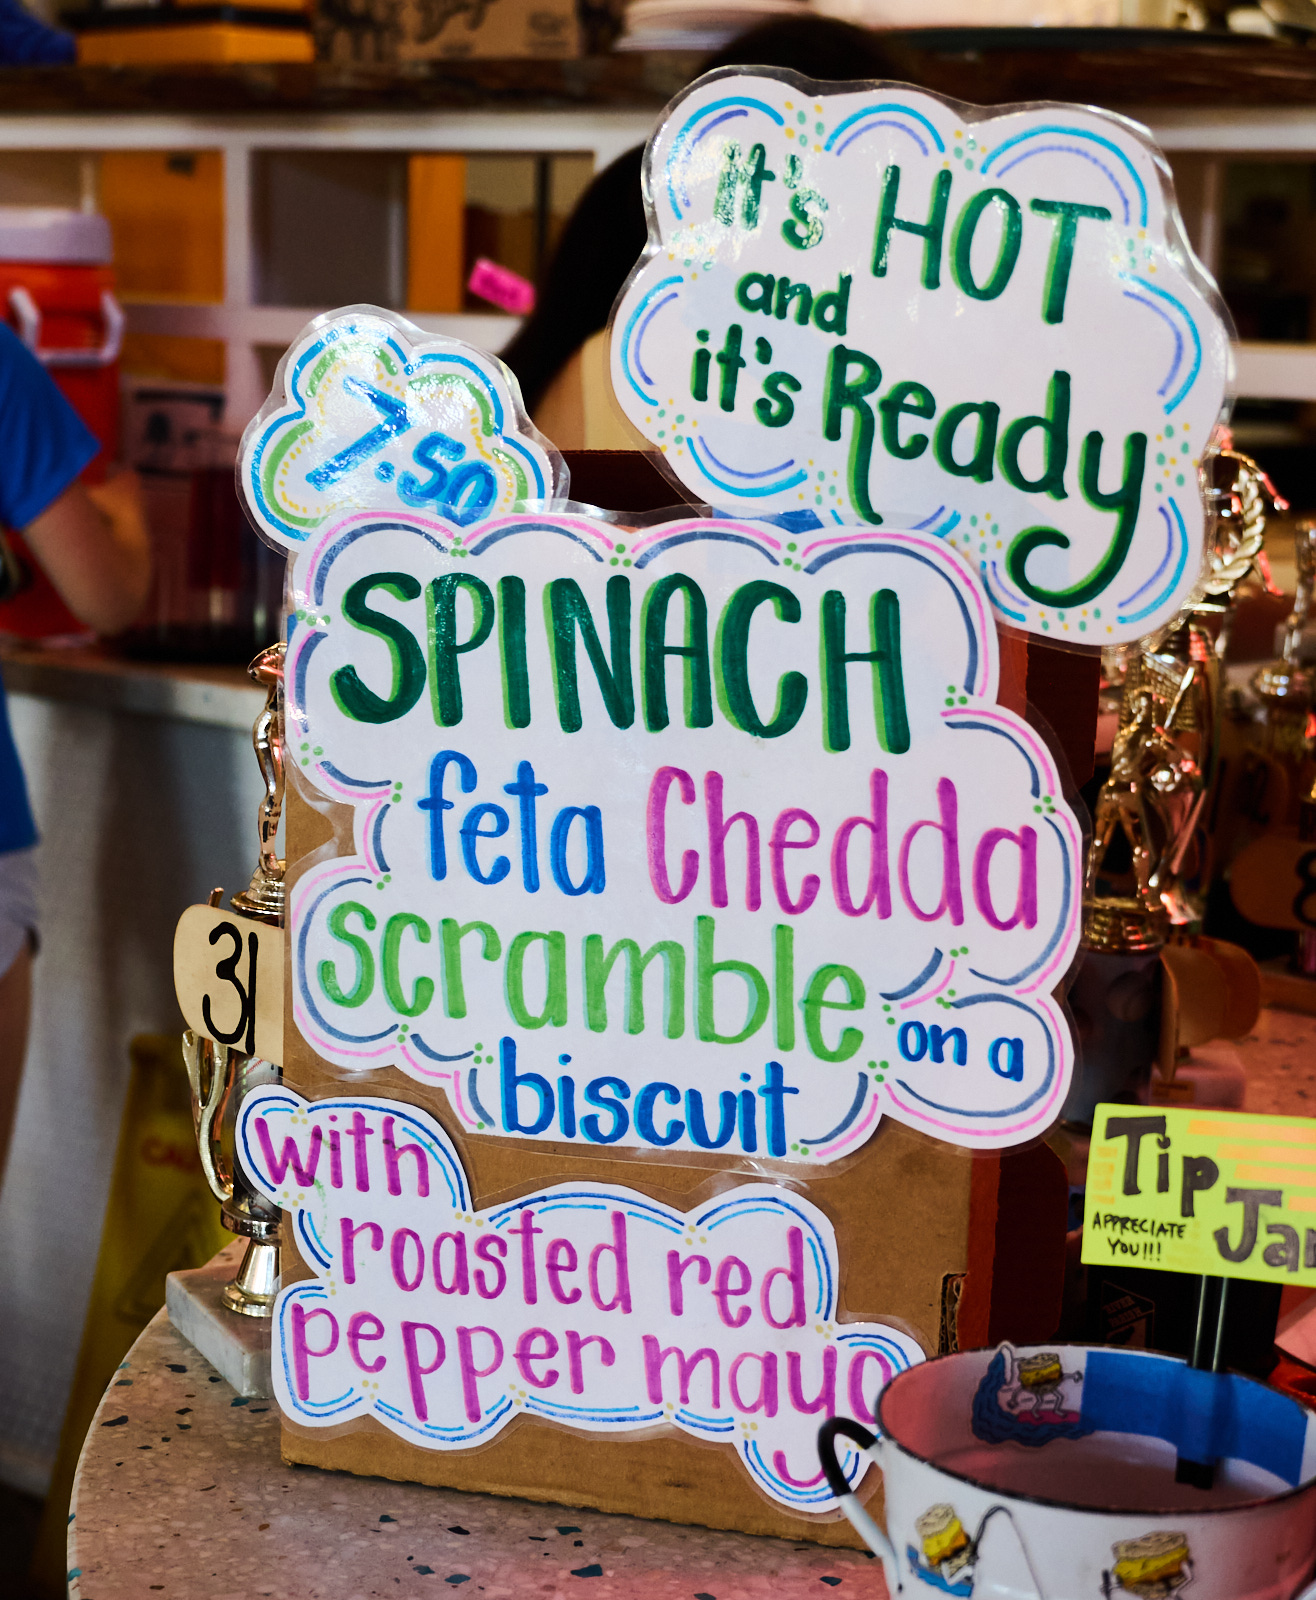 It's HOT
and
it's Ready
7.50
SPINACH
feta Chedda
scramble on a
biscuit
with
roasted red
pepper mayo
31
Tip
Jar
APPRECIATE
YOU!!!